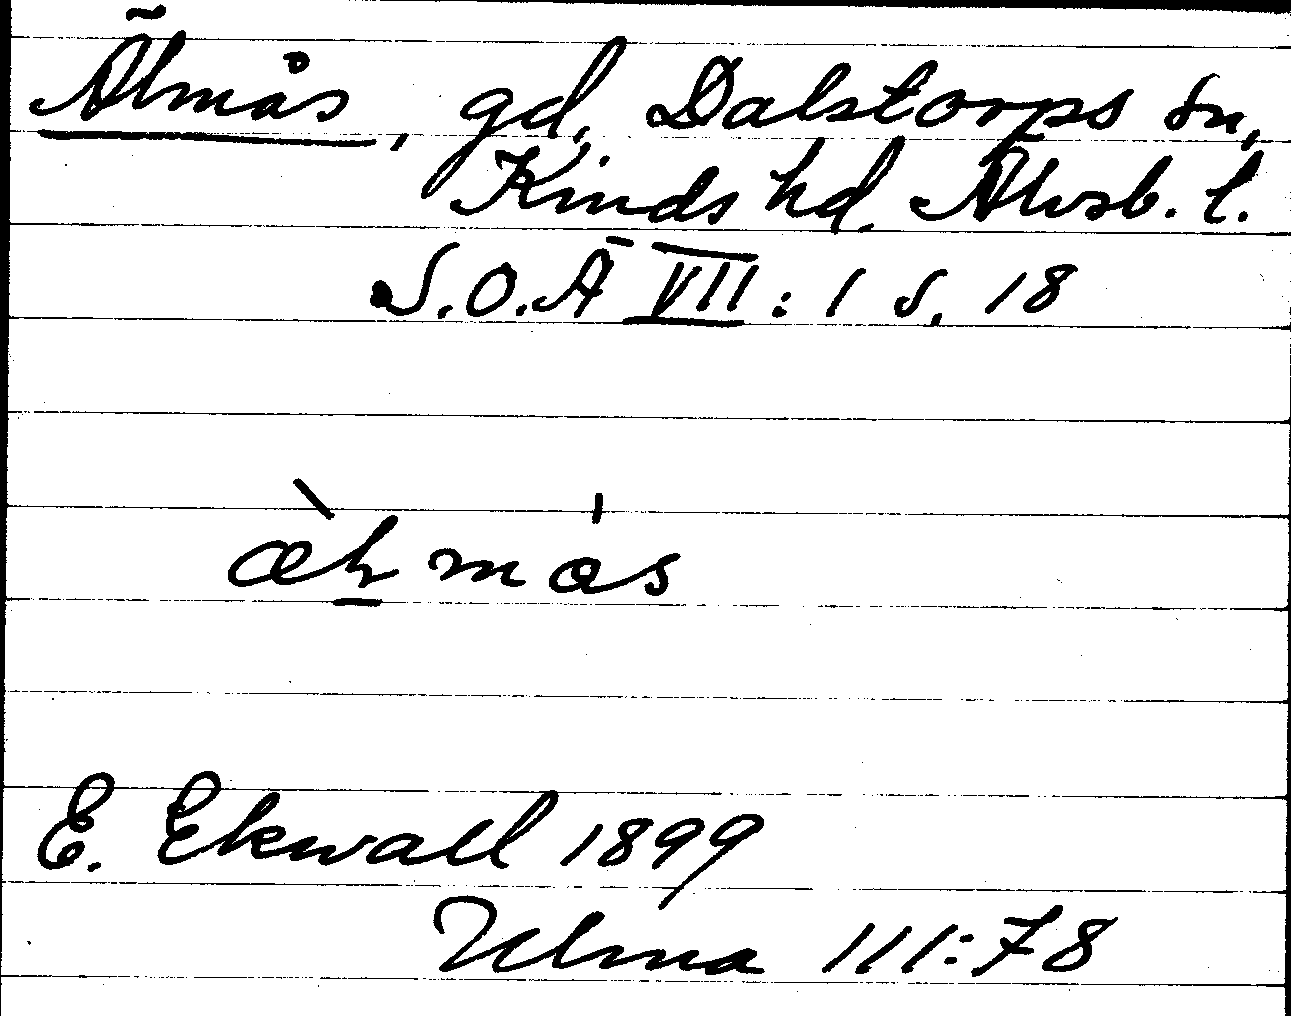 Älmås, gd, Dalstorps sn,
Kinds hd. Älvsb. l.
S.O.Ä VII : 1 s. 18
æ̀lmås
E. Ekwall 1899
Ulma 111:78